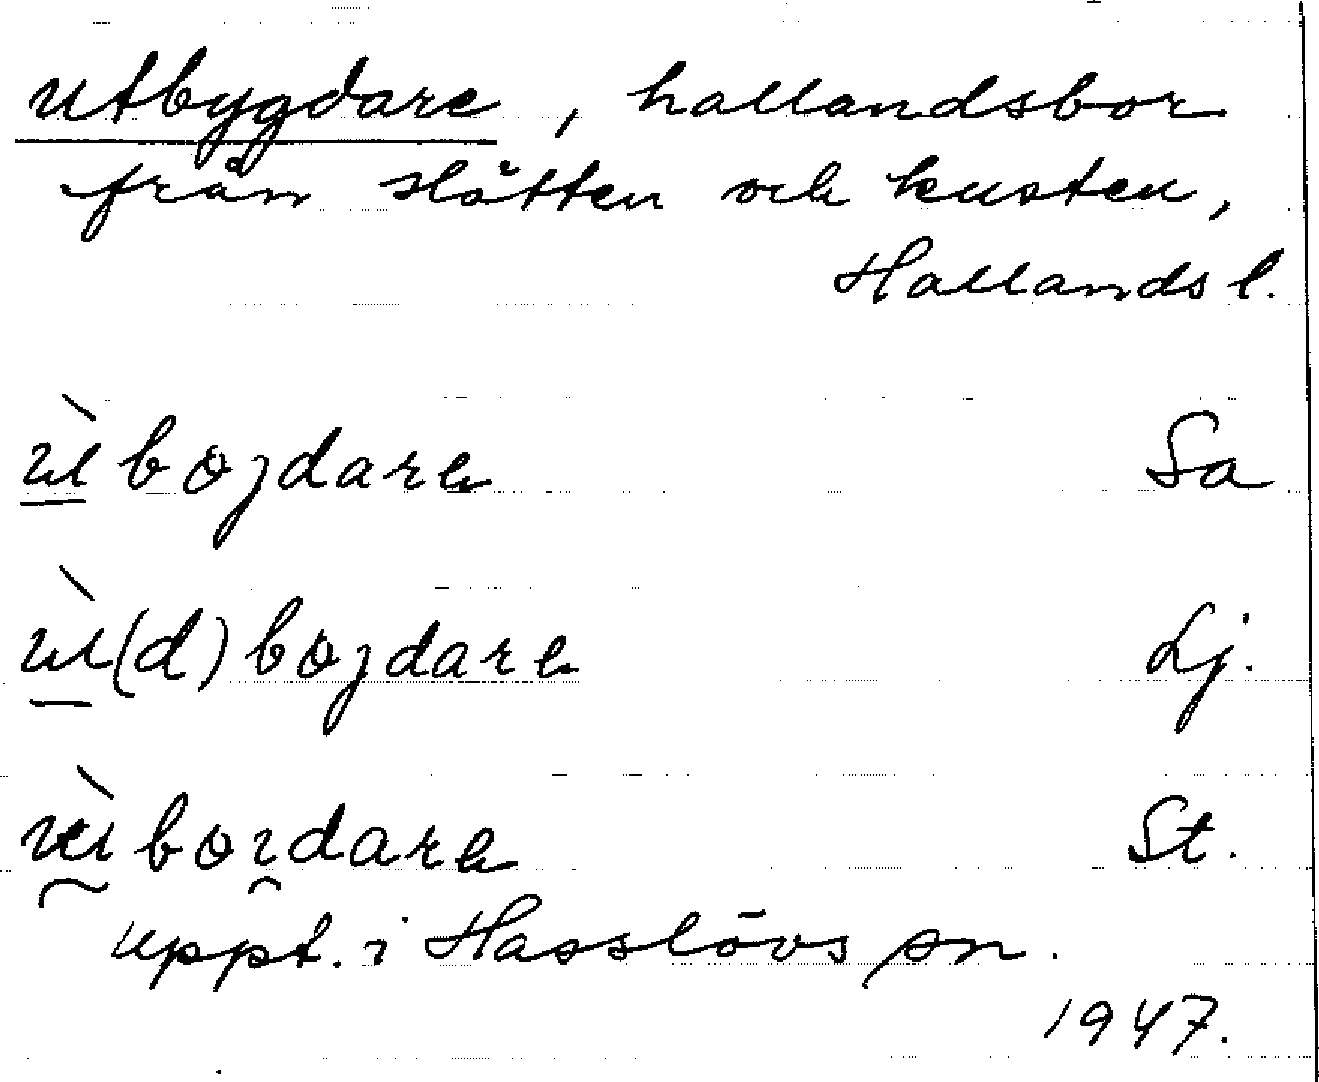 utbygdare, hallandsbor
från slätten och kusten,
Hallands l.
ùbojdare Sa
ù(d)bojdare Lj.
bordare St.
uppt. i Hasslövs sn.
1947.